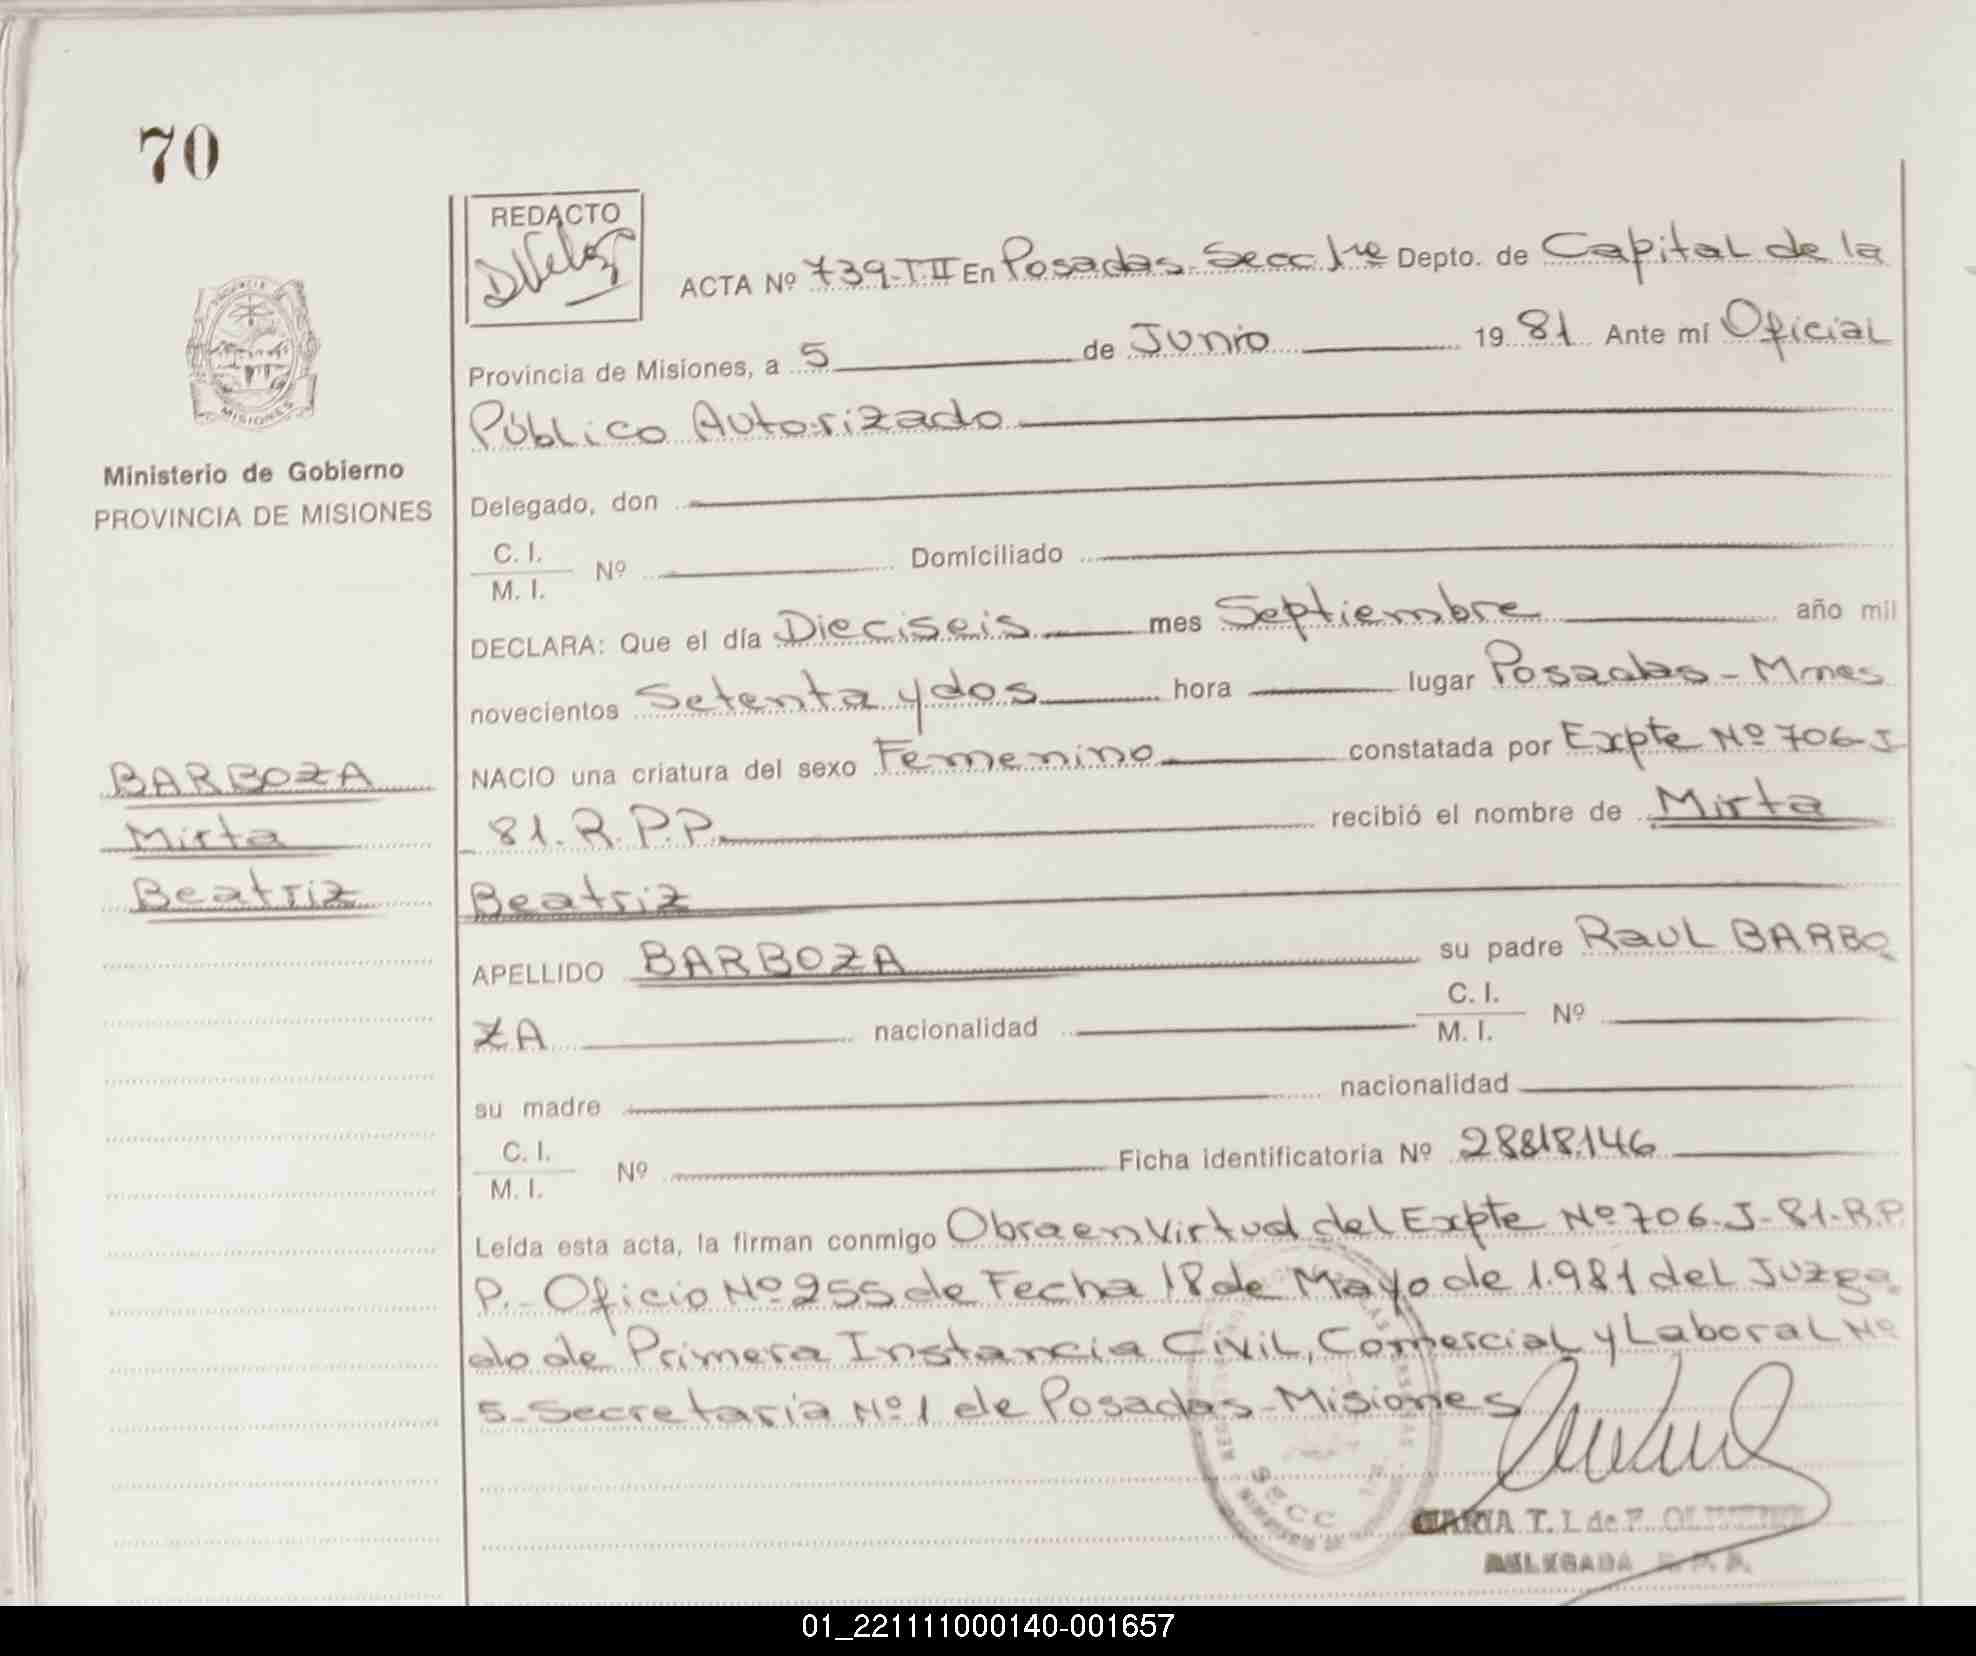 70
REDACTO
ACTA Nº 739-T.II En Posadas Secc 1re Depto. de Capital de la
Provincia de Misiones, a 5 de Junio 19 81 Ante mí Oficial
Público Autorizado
Delegado, don
C. I.
M. I. Nº Domiciliado
DECLARA: Que el día Dieciseis mes Septiembre año mil
novecientos Setenta y dos hora lugar Posadas - Mnes
NACIO una criatura del sexo Femenino constatada por Expte Nº 706-J
81. R. P. P. recibió el nombre de Mirta
Beatriz
APELLIDO BARBOZA su padre Raul BARBO
ZA nacionalidad C. I.
M. I. Nº
su madre nacionalidad
C. I.
M. I. Nº Ficha identificatoria Nº 28818.146
Leída esta acta, la firman conmigo Obra en Virtud del Expte Nº 706-J-81-R.P.
P.- Oficio Nº 255 de Fecha 18 de Mayo de 1.981 del Juzga
do de Primera Instancia Civil, Comercial y Laboral Nº
5-Secretaria Nº 1 de Posadas-Misiones
MARIA T. I. de P.
DELEGADA R. P. P.
SECC
Ministerio de Gobierno
PROVINCIA DE MISIONES
MISIONES
BARBOZA
Mirta
Beatriz
01_221111000140-001657